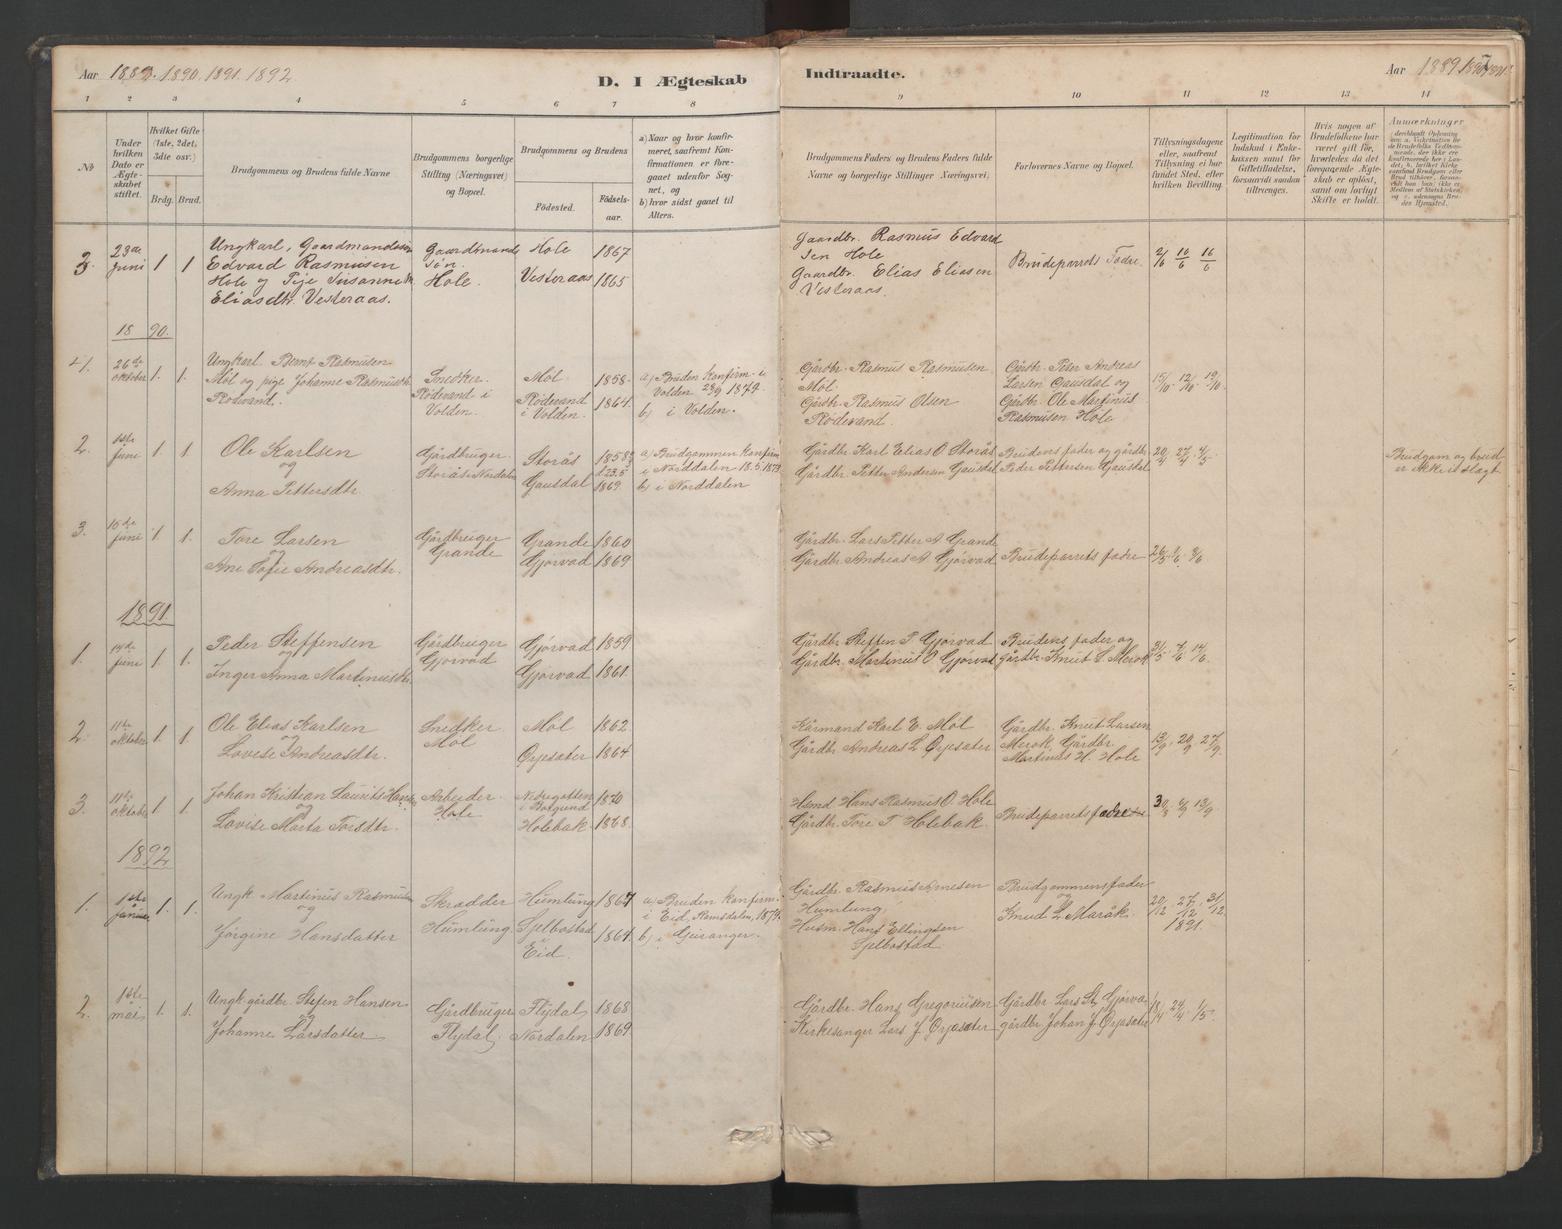 Aar 1889. 1890. 1891. 1892
D. I Ægteskab
Indtraadte.
Aar 1889. 1890. 1891.
7
1 2 3 4 5 6 7 8
9 10 11 12 13 14
№
Under hvilken Dato er Ægteskabet stiftet.
Hvilket Gifte (1ste, 2det, 3die osv.)
Brdg. Brud.
Brudgommens og Brudens fulde Navne
Brudgommens borgerlige Stilling (Næringsvei) og Bopæl.
Brudgommens og Brudens
Fødested.
Fødselsaar.
a) Naar og hvor konfirmeret, saafremt Konfirmationen er foregaaet udenfor Sognet, og
b) hvor sidst gaaet til Alters.
Brudgommens Faders og Brudens Faders fulde Navne og borgerlige Stillinger (Næringsvei).
Forlovernes Navne og Bopæl.
Tillysningsdagene eller, saafremt Tillysning ei har fundet Sted, efter hvilken Bevilling.
Legitimation for Indskud i Enkekassen samt for Giftetilladelse, forsaavidt saadan tiltrænges.
Hvis nogen af Brudefolkene har været gift før, hvorledes da det foregaaende Ægteskab er opløst, samt om lovligt Skifte er holdt.
Anmærkninger
3. 23de Juni 1 1
Ungkarl, Gaardmandssøn
Edvard Rasmusen
Hole og Pige Susanne
Eliasdtr. Vesteraas.
Gaardmands
søn
Hole.
Hole 1867
Vesteraas 1865
Gaardbr. Rasmus Edvard
sen Hole
Gaardbr. Elias Eliasen
Vesteraas.
Brudeparrets Fædre 2/6 10/6 16/6
1890.
1. 26de oktober 1. 1.
Ungkarl. Bernt Rasmusen
Møl og pige Johanne Rasmusdtr.
Rødvand.
Snedker.
Rødevand i
Volden.
Møl 1858
Rødevand 1864
i Volden.
a) Bruden konfirm. i
Volden 28/9 1879.
b) i Volden.
Gårdbr. Rasmus Rasmusen
Møl.
Gårdbr. Rasmus Olsen
Rødevand.
Gårdbr. Peter Andreas
Larsen Gausdal og
Gårdbr. Ole Martinus
Rasmusen Hole
5/10 12/10 19/10
2. 1ste Juni 1 1
Ole Karlsen
og
Anna Pettersdtr.
Gårdbruger
Storås i Nordalen
Storås 1858
Gausdal 1869
a) Brudgommen konfirm
i Norddalen 18.5.1873
b) i Norddalen
Gårdbr. Karl Elias O. Storås
Gårdbr. Petter Andersen Gausdal
Brudens fader og gårdbr.
Peder Pettersen Gausdal
20/4 27/4 4/5
Brudgom og brud
er ikke i slægt
3. 15de juni 1 1.
Tore Larsen
og
Ane Sofie Andreasdtr.
Gårdbruger
Grande
Grande 1860
Gjørvad 1869
Gårdbr. Lars Petter A. Grande
Gårdbr. Andreas A. Gjørvad
Brudeparrets fædre 26/5. 1/6. 8/6
1891
1. 14de juni 1 1.
Peder Steffensen
og
Inger Anna Martinusdtr.
Gårdbruger
Gjørvad
Gjørvad 1859
Gjørvad 1861
Gårdbr. Steffen P. Gjørvad
Gårdbr. Martinus O. Gjørvad
Brudens fader og
gårdbr. Knut L. Merok
31/5 7/6 14/6
2. 11te oktober 1 1
Ole Elias Karlsen
og
Lovise Andreasdtr.
Snedker
Møl
Møl 1862
Ørjesæter 1864
Kårmand Karl E. Møl
Gårdbr. Andreas L. Ørjesæter
Gårdbr. Knut Larsen
Merok, Gårdbr.
Martinus H. Hole
13/9. 20/9 27/9.
3. 11te oktober 1 1
Johan Kristian Laurits Hansen
og
Lovise Marta Torsdtr.
Arbeider
Hole
Nedregotten 1870
i Borgund
Holebak 1868.
Hsmd Hans Rasmus O. Hole
Gårdbr. Tore T. Holebak.
Brudeparrets fædre 30/8 6/9 13/9
1892
1. 1ste januar 1. 1.
Ungk. Martinus Rasmusen
og
Jørgine Hansdatter
Skrædder
Humlung
Humlung 1867
Sjelbostad 1864.
Eid.
a) Bruden konfirm.
i Eid, Ramsdalen, 1879.
b) i Geiranger.
Gårdbr. Rasmus Arnesen
Humlung.
Husm. Hans Ellingsen
Sjelbostad
Brudgommens fader
og
Knud L. Maråk.
20/12. 27/12. 31/12.
1891.
2. 1ste mai 1. 1.
Ungk. gårdbr. Stefen Hansen
og
Johanne Larsdatter
Gårdbruger
Flydal,
Flydal, 1868
Nordalen 1869
Gårdbr. Hans Gregoriusen
Kirkesanger Lars J. Ørjesæter
Gårdbr. Lars St. Gjørva
gårdbr. Johan J. Ørjesæter
18/4 24/4. 1/5.